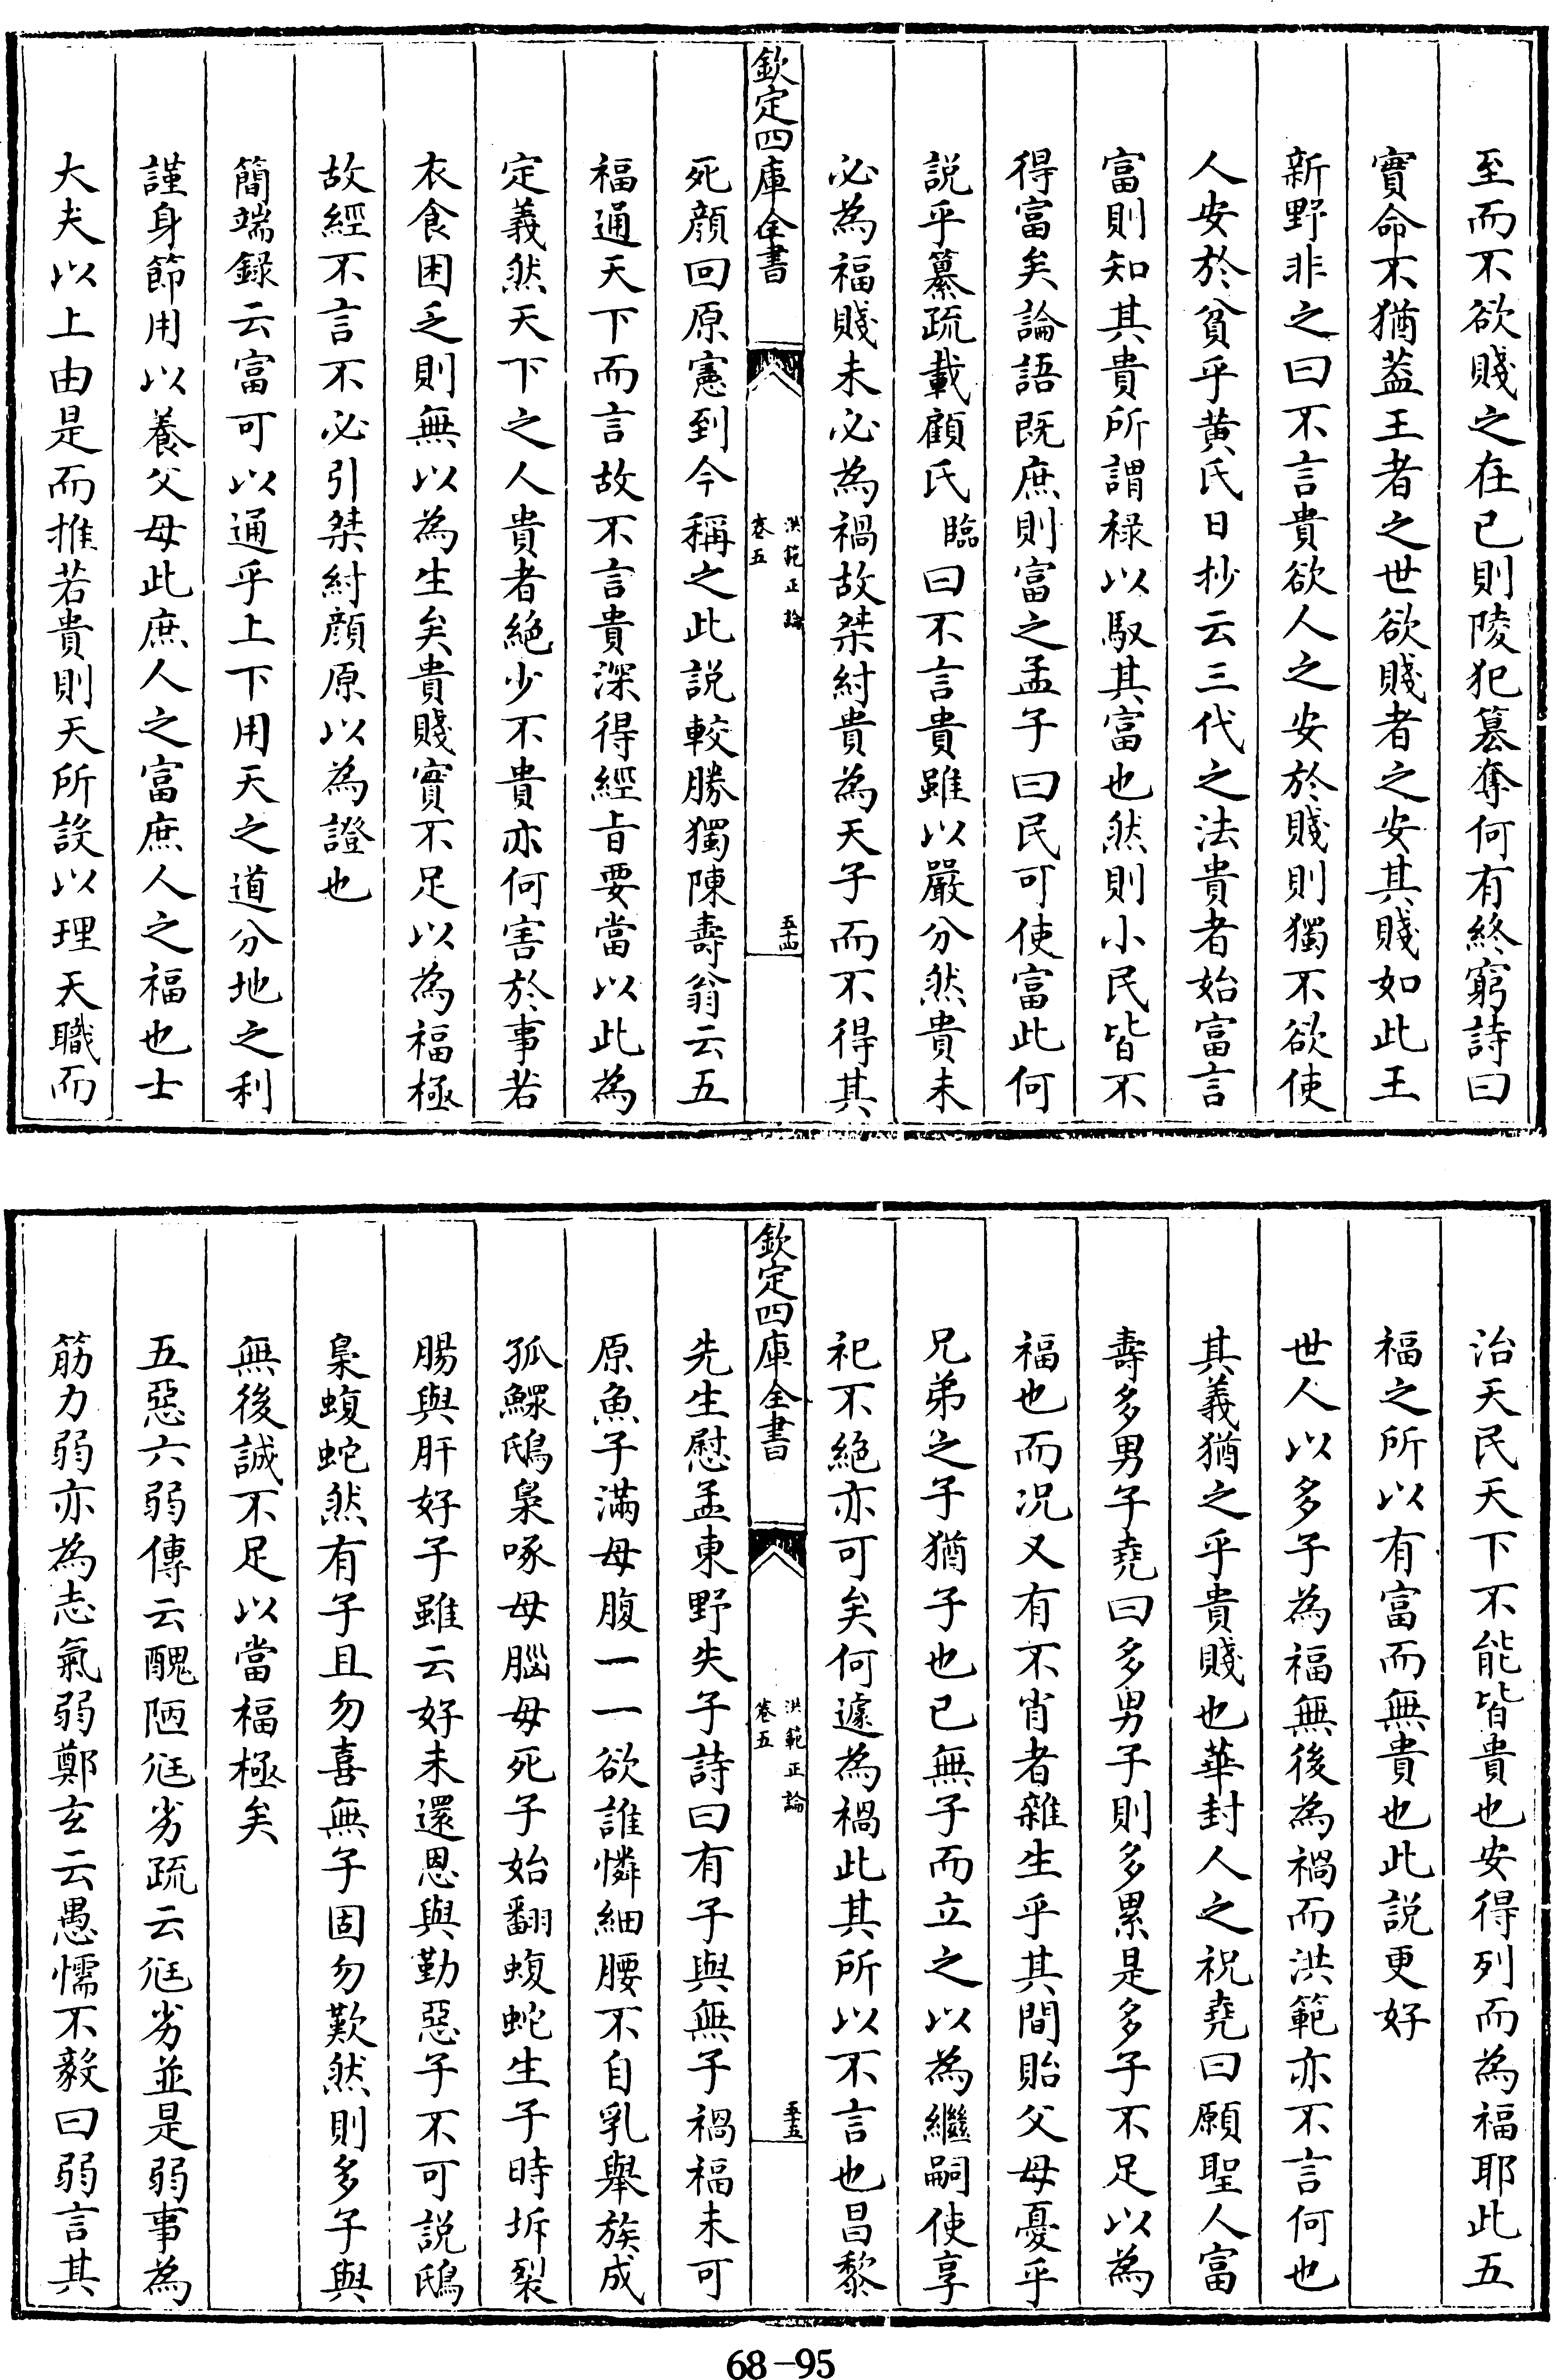 至而不欲賤之在已則陵犯簒奪何有終窮詩曰
實命不猶葢王者之世欲賤者之安其賤如此王
新野非之曰不言貴欲人之安於賤則獨不欲使
人安於貧乎黄氏日抄云三代之法貴者始富言
富則知其貴所謂禄以馭其富也然則小民皆不
得富矣論語既庶則富之孟子曰民可使富此何
説乎纂疏載顧氏臨曰不言貴雖以嚴分然貴未
必為福賤未必為禍故桀紂貴為天子而不得其
欽定四庫全書
洪範正論
卷五
五十四
死顔回原憲到今稱之此説較勝獨陳壽翁云五
福通天下而言故不言貴深得經旨要當以此為
定義然天下之人貴者絶少不貴亦何害於事若
衣食困乏則無以為生矣貴賤實不足以為福極
故經不言不必引桀紂顔原以為證也
簡端録云富可以通乎上下用天之道分地之利
謹身節用以養父母此庶人之富庶人之福也士
大夫以上由是而推若貴則天所設以理天職而
治天民天下不能皆貴也安得列而為福耶此五
福之所以有富而無貴也此説更好
世人以多子為福無後為禍而洪範亦不言何也
其義猶之乎貴賤也華封人之祝堯曰願聖人富
壽多男子堯曰多男子則多累是多子不足以為
福也而况又有不肖者雜生乎其間貽父母憂乎
兄弟之子猶子也已無子而立之以為繼嗣使享
祀不絶亦可矣何遽為禍此其所以不言也昌黎
欽定四庫全書
洪範正論
卷五
五十五
先生慰孟東野失子詩曰有子與無子禍福未可
原魚子滿母腹一一欲誰憐細腰不自乳舉族成
孤鰥鴟梟啄母腦母死子始翻蝮蛇生子時坼裂
腸與肝好子雖云好未還恩與勤惡子不可説鴟
梟蝮蛇然有子且勿喜無子固勿歎然則多子與
無後誠不足以當福極矣
五惡六弱傳云醜陋尫劣疏云尫劣並是弱事為
筋力弱亦為志氣弱鄭玄云愚懦不毅曰弱言其
68-95